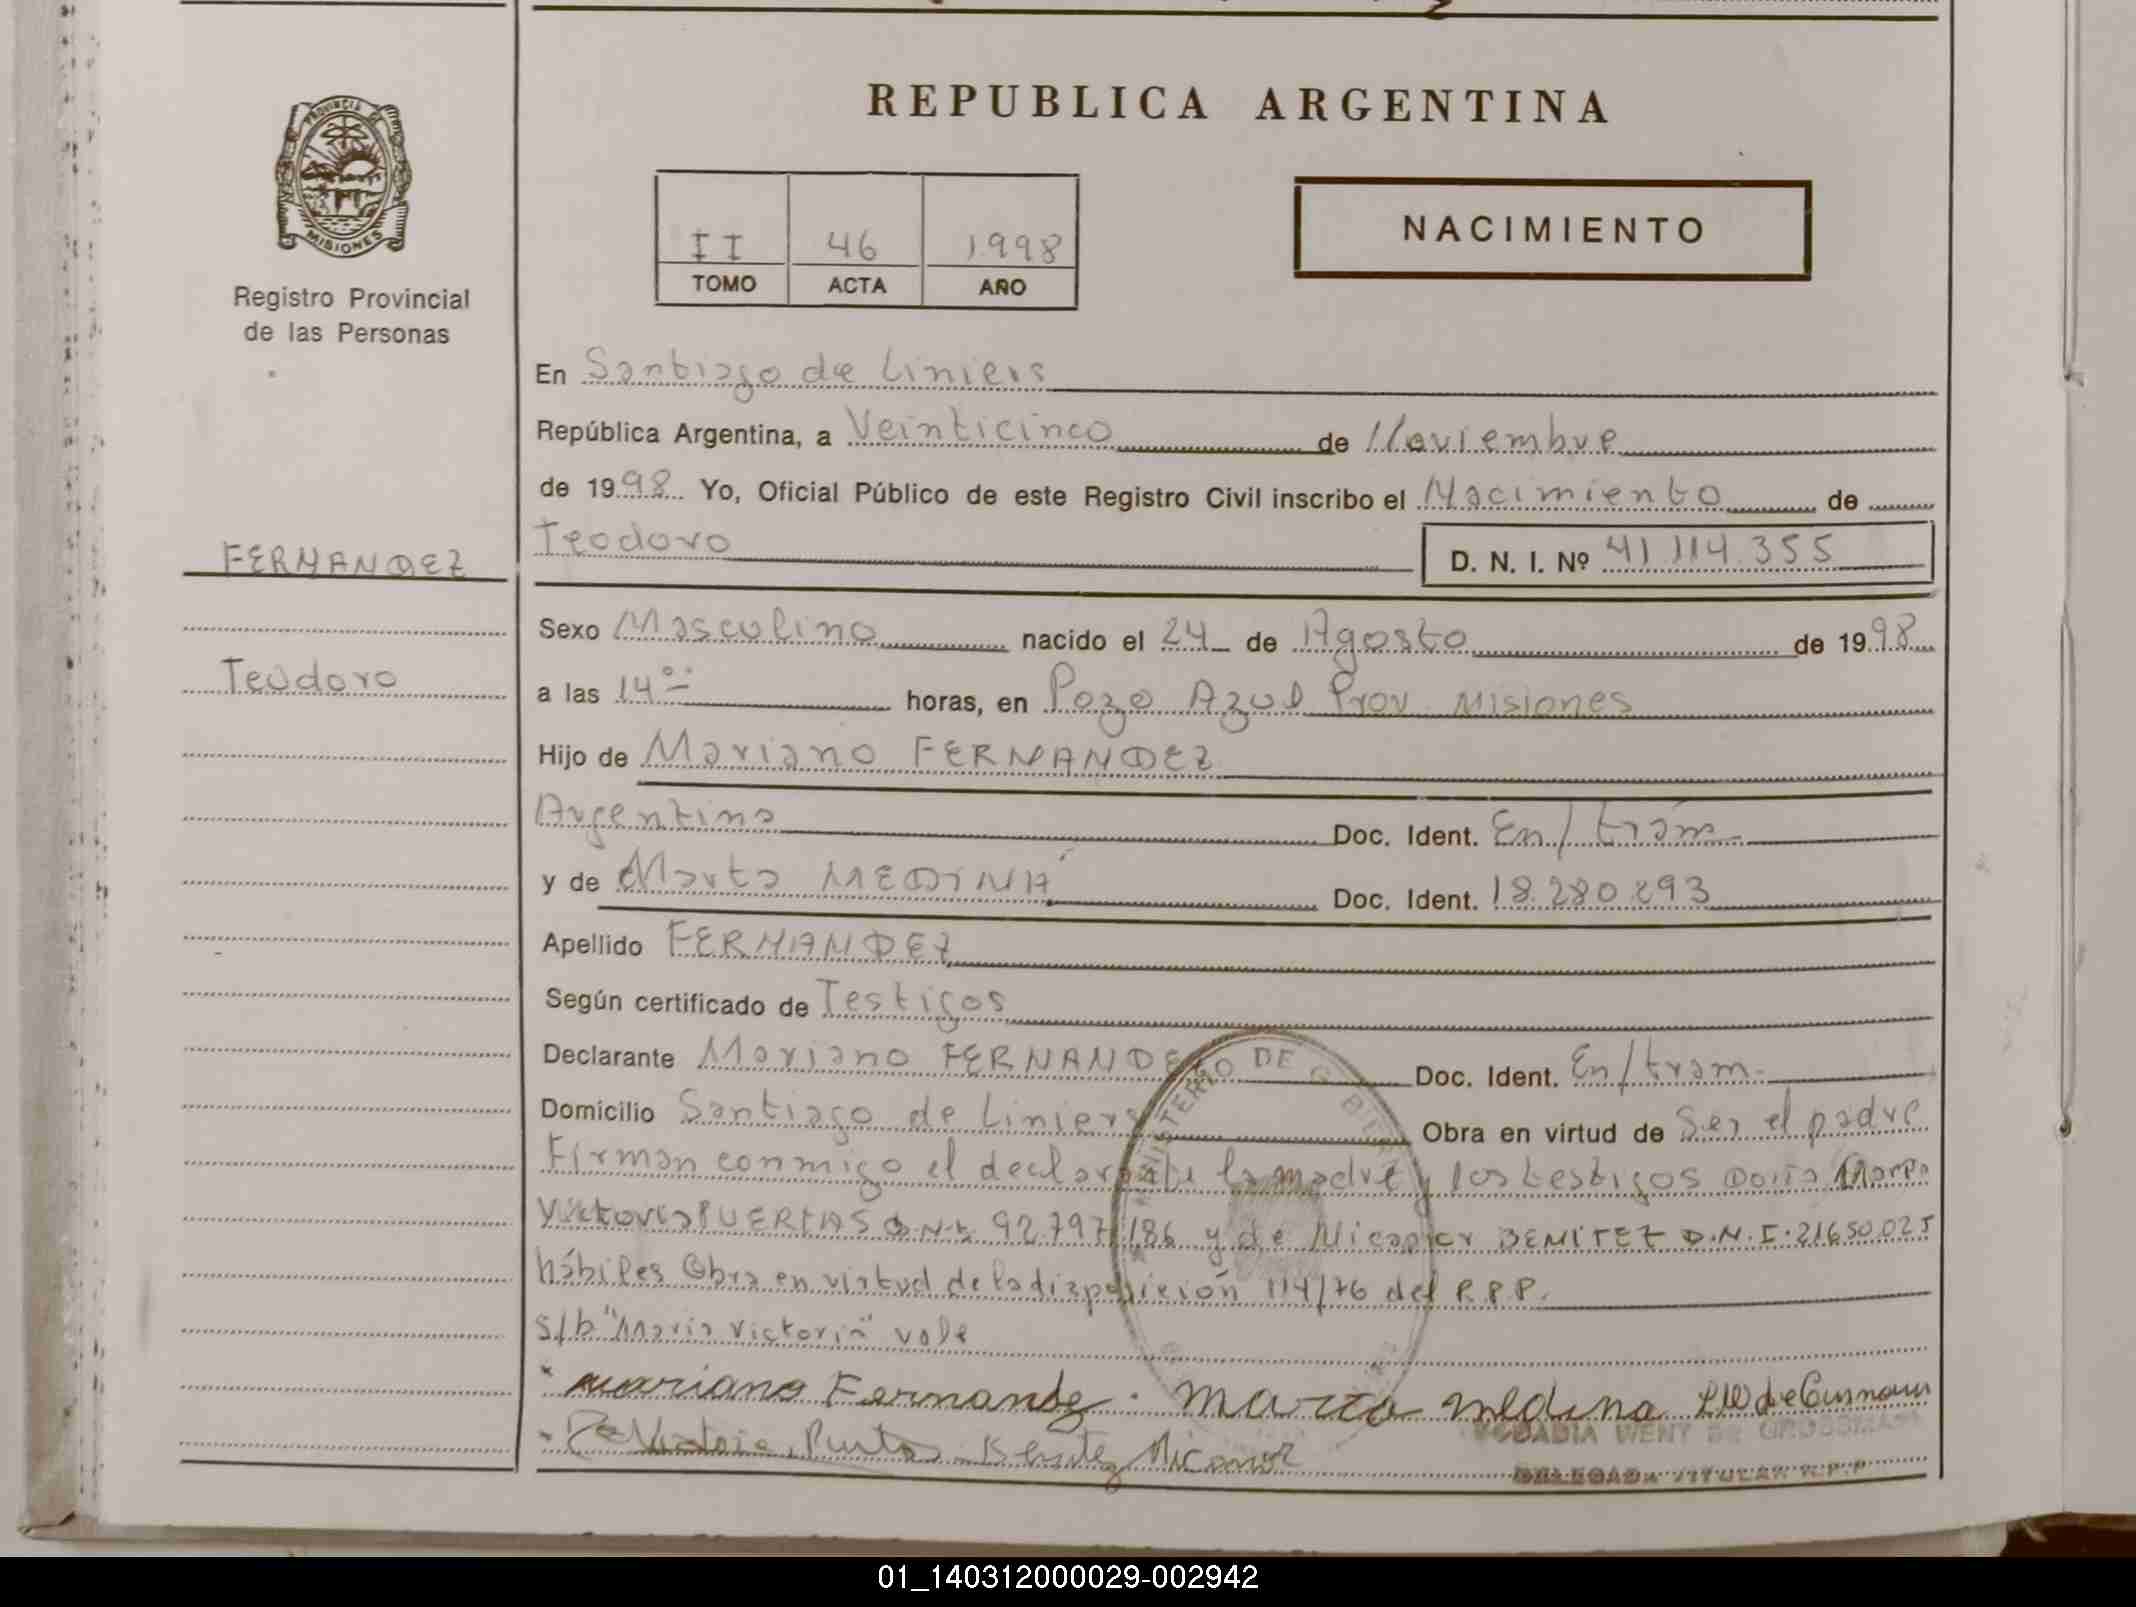 REPUBLICA ARGENTINA
PROVINCIA DE
MISIONES
Registro Provincial
de las Personas
II 46 1998
TOMO ACTA AÑO
NACIMIENTO
En Santiago de Liniers
República Argentina, a Veinticinco de Noviembre
de 1998 Yo, Oficial Público de este Registro Civil inscribo el Nacimiento de
Teodoro D. N. I. Nº 41.114.355
FERNANDEZ
Teodoro
Sexo Masculino nacido el 24 de Agosto de 1998
a las 14 horas, en Pozo Azul Prov. Misiones
Hijo de Mariano FERNANDEZ
Argentino Doc. Ident. En/trám.
y de Marta MEDINA Doc. Ident. 18.280.893
Apellido FERNANDEZ
Según certificado de Testigos
Declarante Mariano FERNANDEZ Doc. Ident. En/tram.
Domicilio Santiago de Liniers Obra en virtud de Ser el padre
Firman conmigo el declarante la madre y los testigos Doña
Victoria PUERTAS D.N.I. 92.797.186 y de Nicanor BENITEZ D.N.I. 21650.025
hábiles Obra en virtud de la disposición 114/76 del R.P.P.
S/b "Maria Victoria" vale
Mariano Fernandez Marta Medina
Benitez Nicanor
MINISTERIO DE GOBIERNO
WENT DE GROSSMANN
DELEGADA TITULAR R.P.P
01_140312000029-002942